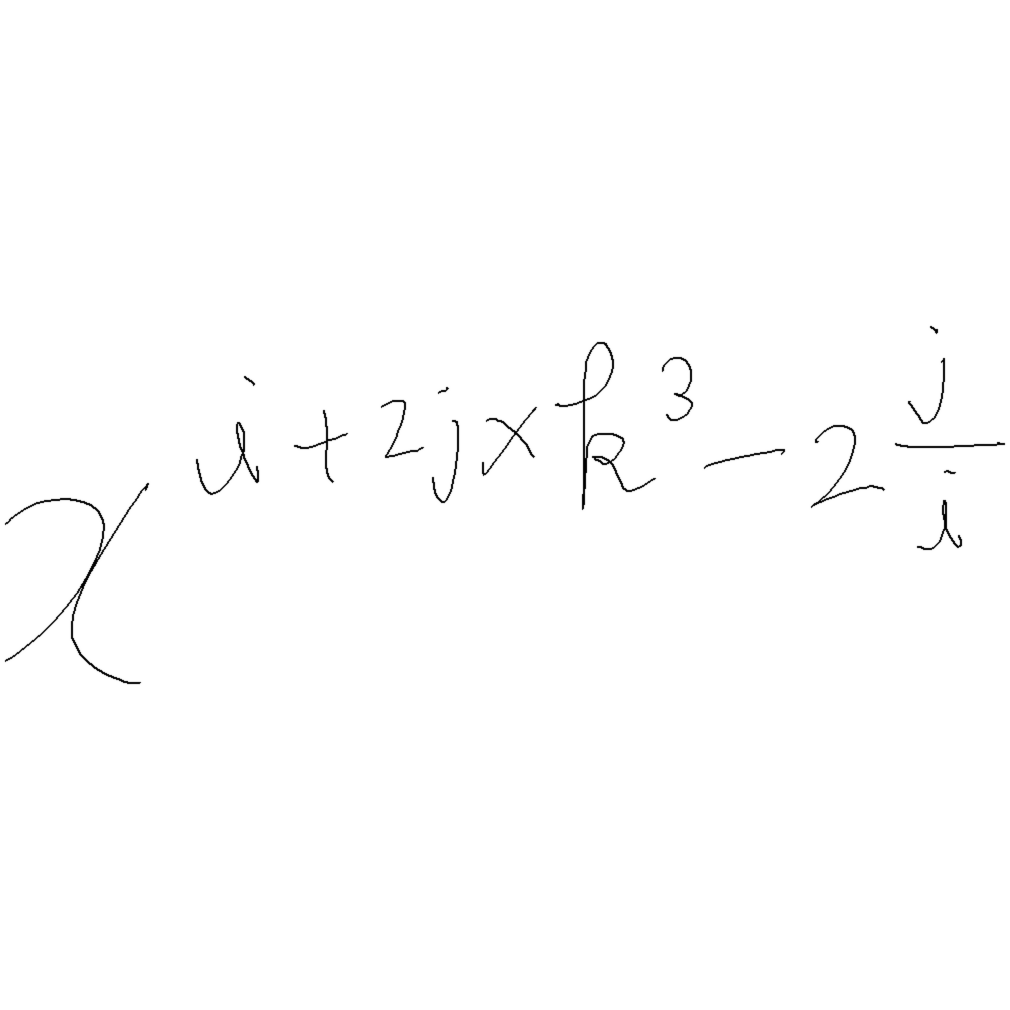 $x^{i+2j \times k^3-2\frac{j}{i}}$